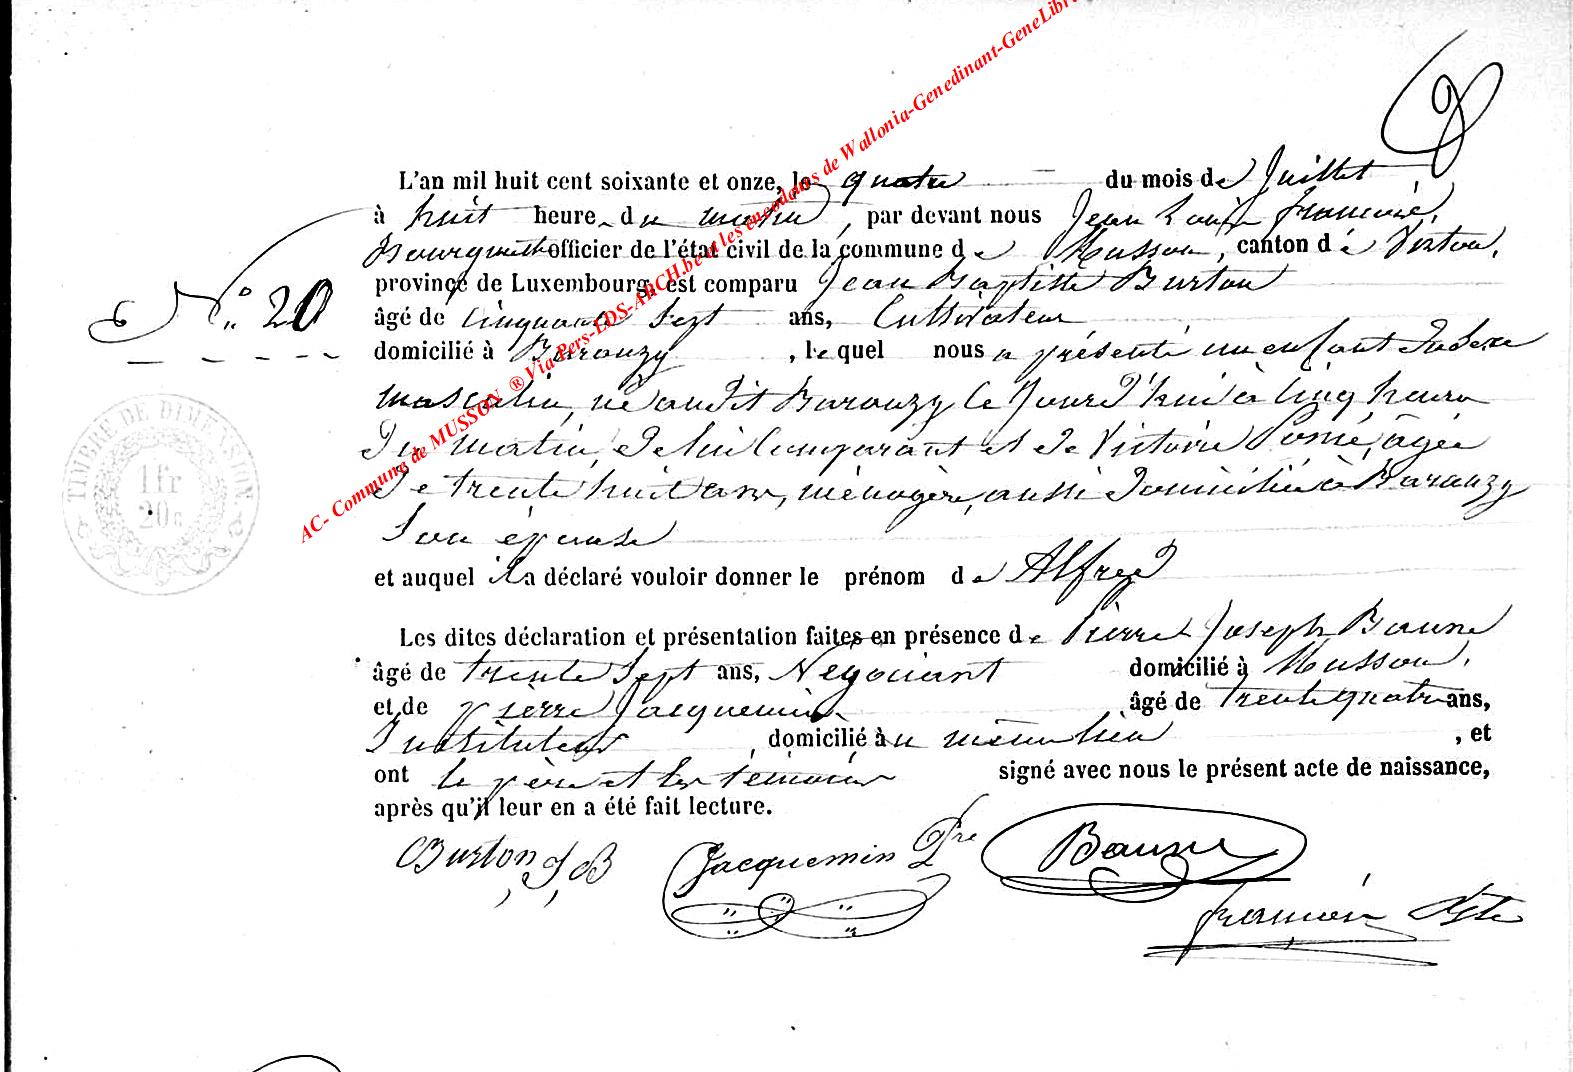 AC- Commune de MUSSON ® Via Pers-EOS-ARCH.be et les encodeurs de Wallonia-Genedinant-GeneLibr
L'an mil huit cent soixante et onze, le quatre du mois de Juillet
à huit heure du matin, par devant nous Jean Louis
officier de l'état civil de la commune de Musson, canton de Virton,
province de Luxembourg, est comparu Jean Baptiste Burton
N° 20
âgé de cinquante sept ans, Cultivateur
domicilié à Baranzy, lequel nous a présenté un enfant du sexe
masculin, né audit Baranzy ce jourd'hui à cinq heures
du matin, de lui comparant et de Victoire âgée
de trente huit ans, ménagère, aussi domiciliée à Baranzy
Son épouse
TIMBRE DE DIMENSION.
1 fr
20 c
et auquel il a déclaré vouloir donner le prénom de Alfred
Les dites déclaration et présentation faites en présence de Pierre Joseph Baune
âgé de trente sept ans, Négociant domicilié à Musson,
et de Pierre Jacquemin âgé de trente quatre ans,
Instituteur, domicilié au même lieu, et
ont le père et les témoins signé avec nous le présent acte de naissance,
après qu'il leur en a été fait lecture.
Burton, J, B Jacquemin Pre Baune